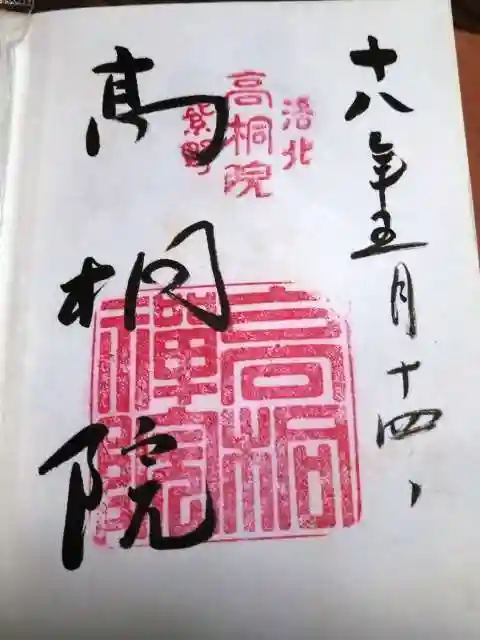 十八年五月十四、
洛北
高桐院
紫野
高桐院
高桐
禅院